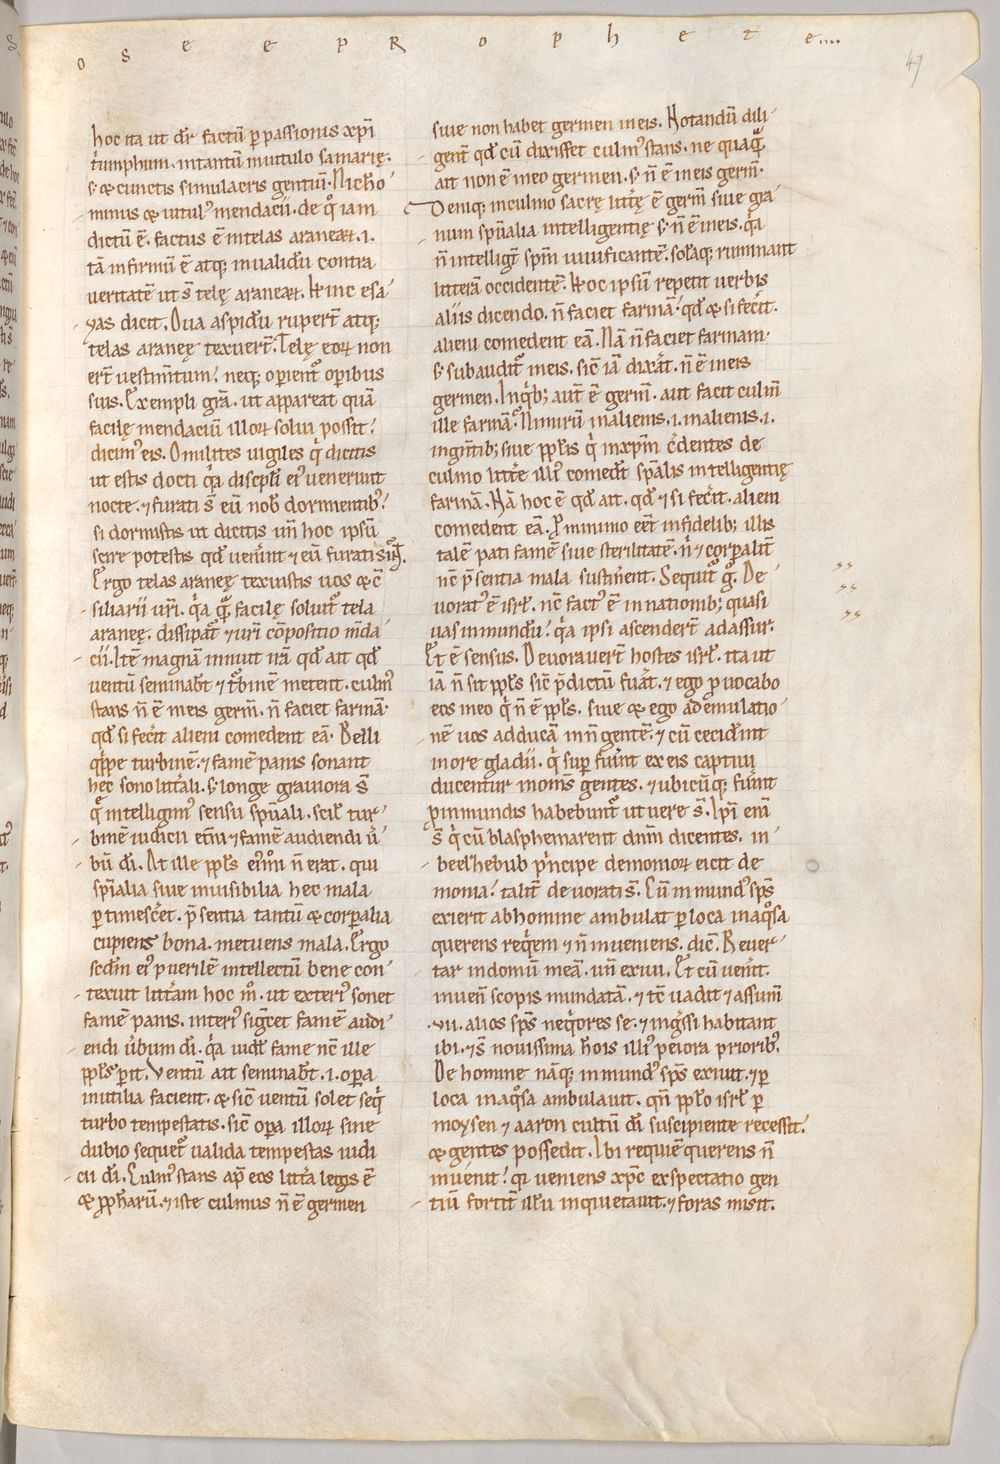 o s e e p R o p h e t e....
47
hoc ita ut dr̄ factū p̱ passionis xp̄i
t'umphum. intantū inuitulo samarię.
s; & cunctis simulacris gentiū. Nicho
minus & uitul' mendacii. de q̊ iam
dictū ē. factus ē intelas araneaꝝ .i.
tā infirmū ē atq; inualidū contra
veritatē ut s̄ telę araneaꝝ. Hinc esa
yas dicit. Oua aspidū rupert̄ atq;
telas araneę texuert̄. Telę eoꝝ non
ert̄ uestim̄tum. neq; op̱ient̄ op̱ibus
suis. Exempli grā. ut appareat quā
facilę mendaciū illoꝝ solui possit.
dicim' eis. O milites uigiles q' dicitis
ut estis docti q'a discipl'i ei' uenerunt
nocte. ⁊ furati s̄ eū nob̄ dormientib'.
si dormistis ut dicitis un̄ hoc ipsū
scire potestis qd̄ uen'int ⁊ eū furati sint.
Ergo telas araneę texuistis uos & c̄
siliarii ur̄i. q'a q̄q̄ facilę soluit̄ tela
araneę. dissipat̄ ⁊ ur̄i cōpositio m̄da
cii. Itē magnā innuit irā qd̄ ait qd̄
ventū seminab̄t ⁊ t'binē metent. culm'
stans n̄ ē in eis germ̄. n̄ faciet farinā.
qd̄ si fec'it alieni comedent eā. Belli
q'ppe turbinē. ⁊ famē panis sonant
hęc sono litt'ali. s; longe grauiora s̄
q̄ intelligim' sensu sp̄uali. scil' tur
binē iudicii et̄ni ⁊ famē audiendi u'
bū dī. At ille pp̄ls ei'm̄ n̄ erat. qui
sp̄ialia siue inuisibilia hec mala
p̱timesc'et. p̄sentia tantū & corp̱alia
cupiens bona. metuens mala. Ergo
scd̄m ei' puerilē intellectū bene con
texuit litt'am hoc m̊. ut exteri' sonet
famē panis. interi' sig̅cet famē audi
endi u'bum dī. q'a iudic̄ fame nc̄ ille
pp̄ls p̱it. Ventū ait seminab̄t .i. op̱a
inutilia facient. & sic̄ uentū solet seq'
turbo tempestatis. sic̄ op̱a illoꝝ sine
dubio sequet̄ ualida tempestas iudi
cii dī. Culm' stans ap̄ eos litt'a legis ē
& pp̄haꝝ. ⁊ iste culmus n̄ ē germen
siue non habet germen in eis. Notandū dili
gent̄ qd̄ cū dixisset culm' stans. ne quaq̄
ait non ē in eo germen. s; n̄ ē in eis germ̄.
Deniq; inculmo sacrę litt'ę ē germ̄ siue gra
num sp̄ualis intelligentię s; n̄ ē in eis. q'a
n̄ intelligt̄ sp̄m uiuificantē. solāq; ruminant
litterā occidentē. Hoc ipsū repetit uerbis
aliis dicendo. n̄ faciet farinā. qd̄ & si fec'it.
alieni comedent eā. Nā n̄ faciet farinam.
s; subaudit̄ in eis. sic̄ iā dixat̄. n̄ ē in eis
germen. In q'b; aut̄ ē germ̄. aut facit culm̄
ille farinā. Nimirū inalienis .i. inalienis .i.
ingn̄tib; siue pp̄lis q' inxp̄m c'dentes de
culmo litt'e illi' comedt̄ sp̄alis intelligentię
farinā. Nā hoc ē qd̄ ait. qd̄ ⁊ si fec'it. alieni
comedent eā. P̱ minimo eēt infidelib; illis
talē pati famē siue sterilitatē. n' ⁊ corp̱alit̄
nc̄ p̄sentia mala sustin'ent. Sequit̄ g̊. De
uorat' ē isrl̄. nc̄ fact' ē in nationib; quasi
uas inmundū. q'a ipsi ascendert̄ ad assur.
Et ē sensus. Deuorauert̄ hostes isrl̄. ita ut
iā n̄ sit pp̄ls sic̄ p̄dictū fuat̄. ⁊ ego puocabo
eos in eo q' n̄ ē pp̄ls. siue & ego ad emulatio
nē uos adducā in n̄ gentē. ⁊ cū cecid'int
in ore gladii. q' sup̱ fu'int ex eis captiui
ducentur in om̄s gentes. ⁊ ubicūq; fu'int
pinmundis habebunt̄ ut uere s̄. Ipi enī
s̄ q' cū blasphemarent dn̄m dicentes. in
beelzhebub p'ncipe demonioꝝ eicit de
monia. talit̄ deuorati s̄. Cū inmund' sp̄s
exierit abhomine ambulat p̱ loca inaq̊sa
querens req'em ⁊ n̄ inueniens. dic̄. Reuer
tar indomū meā. un̄ exiui. Et cū uen'it.
inueń scopis mundatā. ⁊ tc̄ uadit ⁊ assum̄
.vii. alios sp̄s neq'ores se. ⁊ ing'ssi habitant
ibi. ⁊ s̄ nouissima h̄ois illi' peiora priorib'.
De homine nāq; inmund' sp̄s exiuit. ⁊ p̱
loca inaq̊sa ambulauit. qn̄ pp̄lo isrl̄ p̱
moysen ⁊ aaron cultū dī suscipiente recessit.
& gentes possedit. Ibi requiē querens n̄
inuenit. qi ueniens xp̄c expectatio gen
tiū fortit̄ illū inquietauit. ⁊ foras misit.